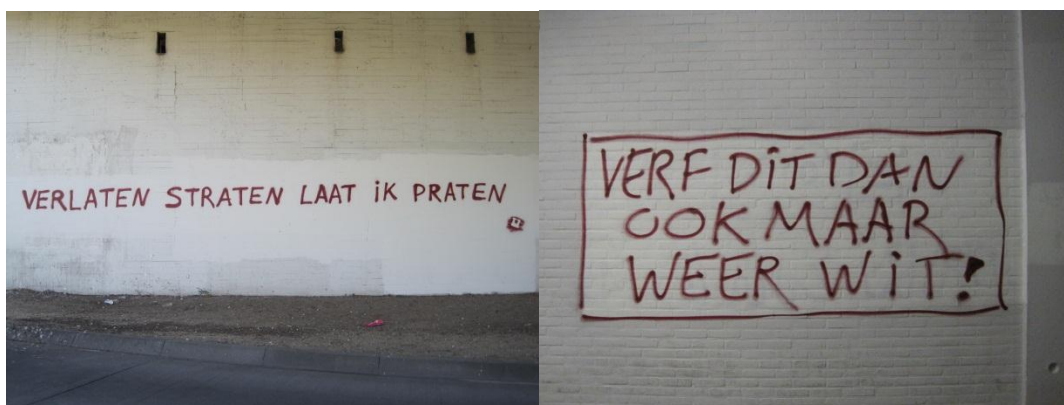 VERLATEN STRATEN LAAT iK PRATEN
VERF DiT DAN
OOK MAAR
WEER WiT!